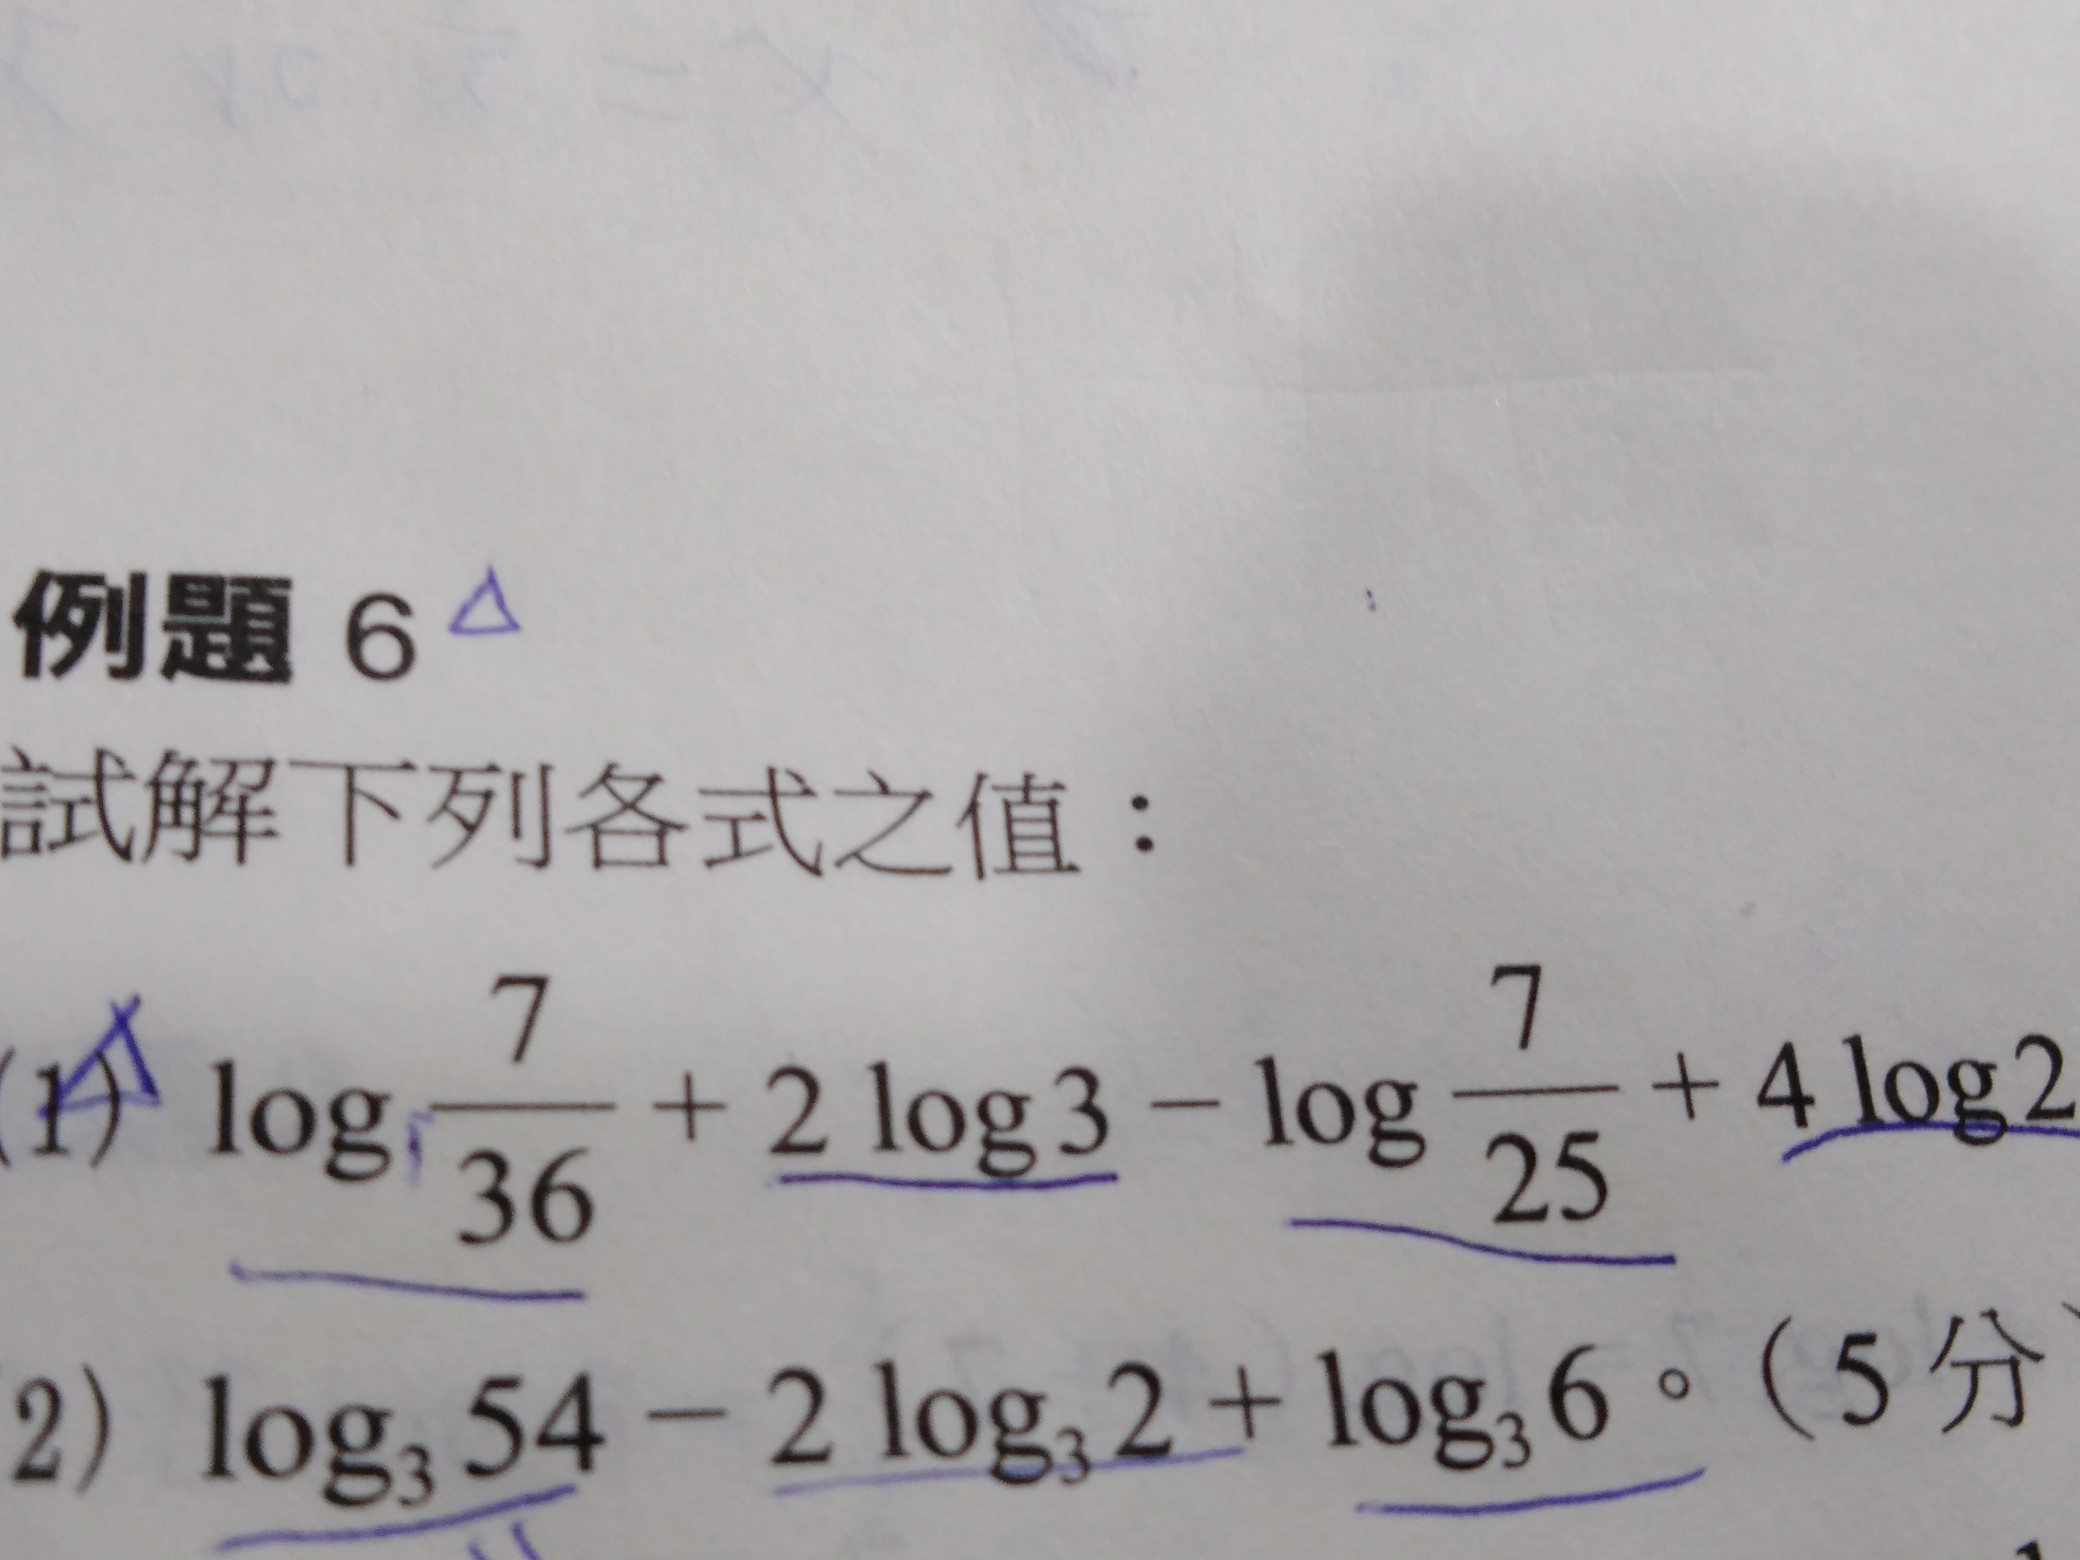 例題 6 △
試解下列各式之值：
(1) log 7/36 + 2 log 3 − log 7/25 + 4 log 2
2) log₃ 54 − 2 log₃ 2 + log₃ 6。(5 分)